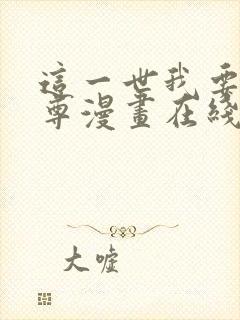 這一世我要
尊漫畫在綫
大嘘